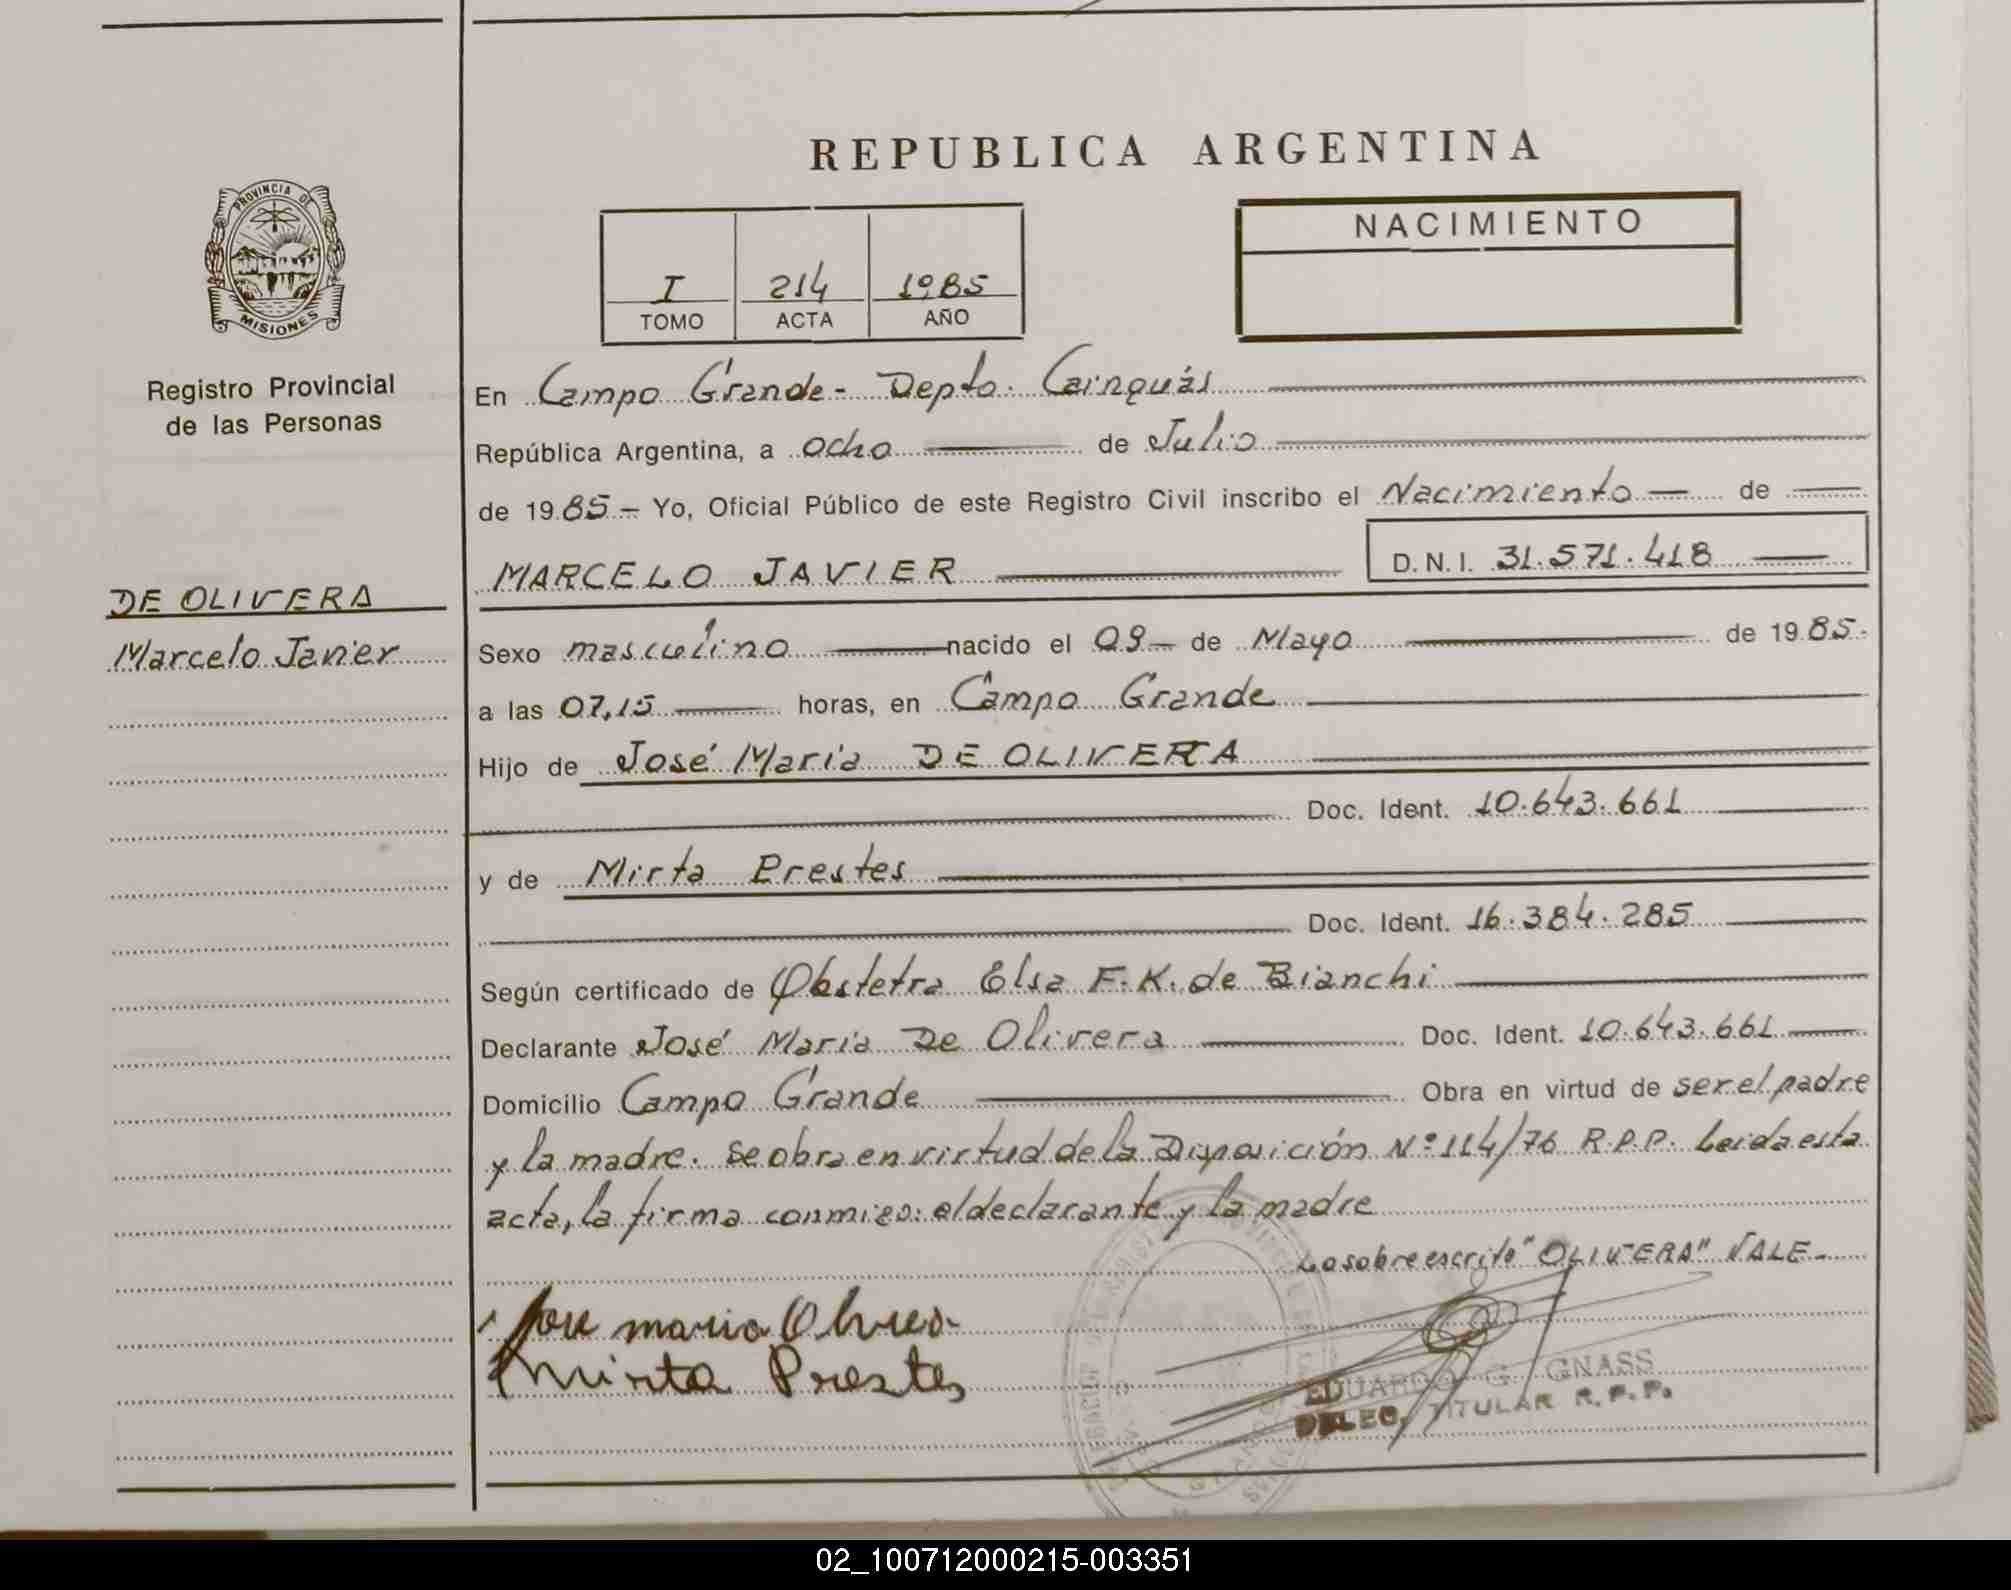 REPUBLICA ARGENTINA
PROVINCIA DE
MISIONES
Registro Provincial
de las Personas
DE OLIVERA
Marcelo Javier
I 214 1985
TOMO ACTA AÑO
NACIMIENTO
En Campo Grande - Depto. Cainguás
República Argentina, a ocho de Julio
de 1985 - Yo, Oficial Público de este Registro Civil inscribo el Nacimiento de
MARCELO JAVIER D.N.I. 31.571.418
Sexo masculino nacido el 09 - de Mayo de 1985.
a las 07,15 horas, en Campo Grande
Hijo de José Maria DE OLIVERA
Doc. Ident. 10.643.661
y de Mirta Prestes
Doc. Ident. 16.384.285
Según certificado de Obstetra Elsa F.K. de Bianchi
Declarante José Maria De Olivera Doc. Ident. 10.643.661
Domicilio Campo Grande Obra en virtud de ser el padre
y la madre. Se obra en virtud de la Disposición Nº 114/76 R.P.P. Leida esta
acta, la firma conmigo: el declarante y la madre
Lo sobre escrito "OLIVERA" VALE -
Jose maria Olivera
Mirta Prestes
EDUARDO G. GNASS
DELEG. TITULAR R.P.P.
02_100712000215-003351